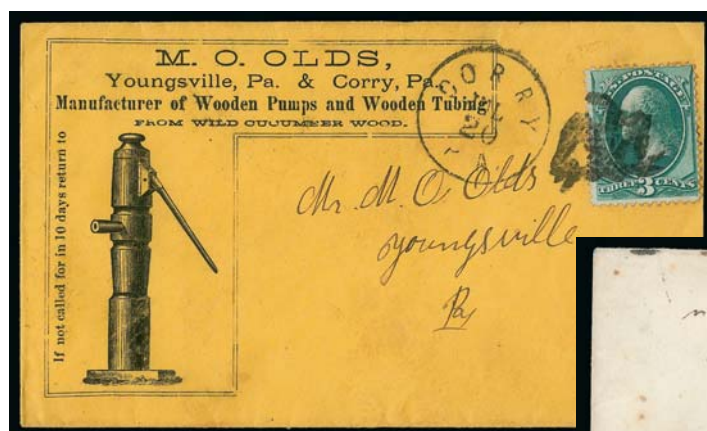 M. O. OLDS,
Youngsville, Pa. & Corry, Pa.
Manufacturer of Wooden Pumps and Wooden Tubing
FROM WILD CUCUMBER WOOD.
If not called for in 10 days return to
CORRY
JUL
20
U.S. POSTAGE
THREE 3 CENTS
Mr. M. O. Olds
Youngsville
Pa